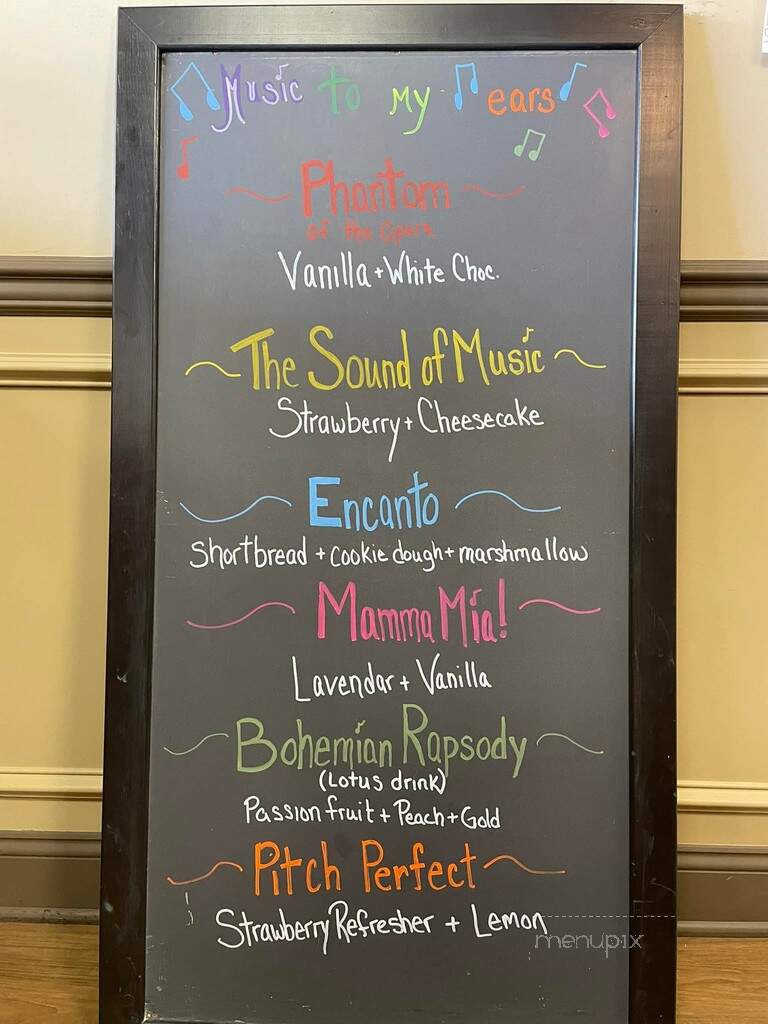 Music to my ears
Phantom
of the Opera
Vanilla + White Choc.
The Sound of Music
Strawberry + Cheesecake
Encanto
Shortbread + cookie dough + marshmallow
Mamma Mia!
Lavendar + Vanilla
Bohemian Rapsody
(Lotus drink)
Passion fruit + Peach + Gold
Pitch Perfect
Strawberry Refresher + Lemon
menupix